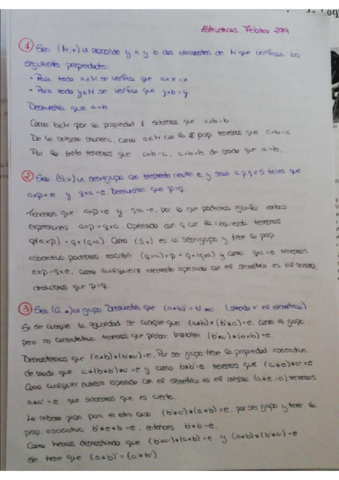 Estructuras Febrero 2019
① Sea (M, *) un monoide y a y b dos elementos de M que verifican las
siguientes propiedades:
• Para todo x∈M se verifica que a*x = x
• Para todo y∈M se verifica que y*b = y
Demuestra que a=b
Como b∈M por la propiedad 1 sabemos que a*b = b
De la misma manera, como a∈M con la 2ª prop. tenemos que a*b = a
Por lo tanto tenemos que a*b=a, a*b=b, de modo que a=b.
② Sea (S, *) un semigrupo con elemento neutro e, y sean a, p, q ∈ S tales que
a*p = e y q*a = e. Demuestra que p=q.
Tenemos que a*p=e y q*a=e, por lo que podemos igualar ambas
expresiones a*p = q*a. Operando con q por la izquierda tenemos
q*(a*p) = q*(q*a). Como (S, *) es un semigrupo y tiene la prop.
asociativa podemos escribir (q*a)*p = q*(q*a) y como q*a=e tenemos
e*p = q*e, como cualquier elemento operado con el neutro es él mismo,
deducimos que p=q.
③ Sea (G, *) un grupo. Demuestra que (a*b)' = b'*a' (siendo x' el simétrico)
Si se cumple la igualdad se cumple que (a*b)*(b'*a')=e, como es grupo
pero no conmutativo tenemos que probar también (b'*a')*(a*b)=e.
Demostremos que (a*b)*(b'*a')=e. Por ser grupo tiene la propiedad asociativa
de modo que a*(b*b')*a'=e y como b*b'=e tenemos que (a*e)*a'=e
Como cualquier número operado con el neutro es él mismo (a*e=a) tenemos
a*a'=e que sabemos que es cierto.
Lo mismo pasa para el otro caso (b'*a')*(a*b)=e, por ser grupo y tener la
prop. asociativa b'*e*b=e, entonces b'*b=e.
Como hemos demostrado que (b'*a')*(a*b)=e y (a*b)*(b'*a')=e
se tiene que (a*b)' = (a'*b')